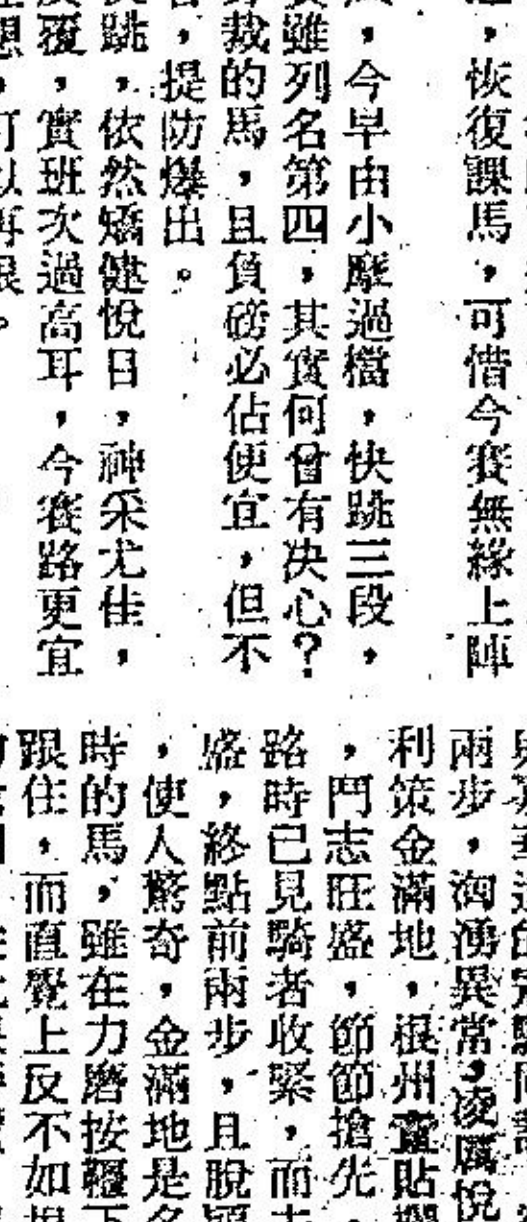 ，恢復課馬，可惜今賽無緣上陣
，今早由小黎過檔，快跳三段，
雖列名第四，其實何曾有决心？
裁的馬，且負磅必佔便宜，但不
，提防爆出。
跳，依然矯健悅目，神采尤佳，
覆，實班次過高耳，今賽路更宜
，可以再跟。
兩步，洶湧異常，凌厲悅
利策金滿地，根州靈貼欄
，鬥志旺盛，節節搶先
路時已見騎者收緊，而
盛，終點前兩步，且脫
，使人驚奇，金滿地是名
時的馬，雖在力磨按韁下
跟住，而直覺上反不如